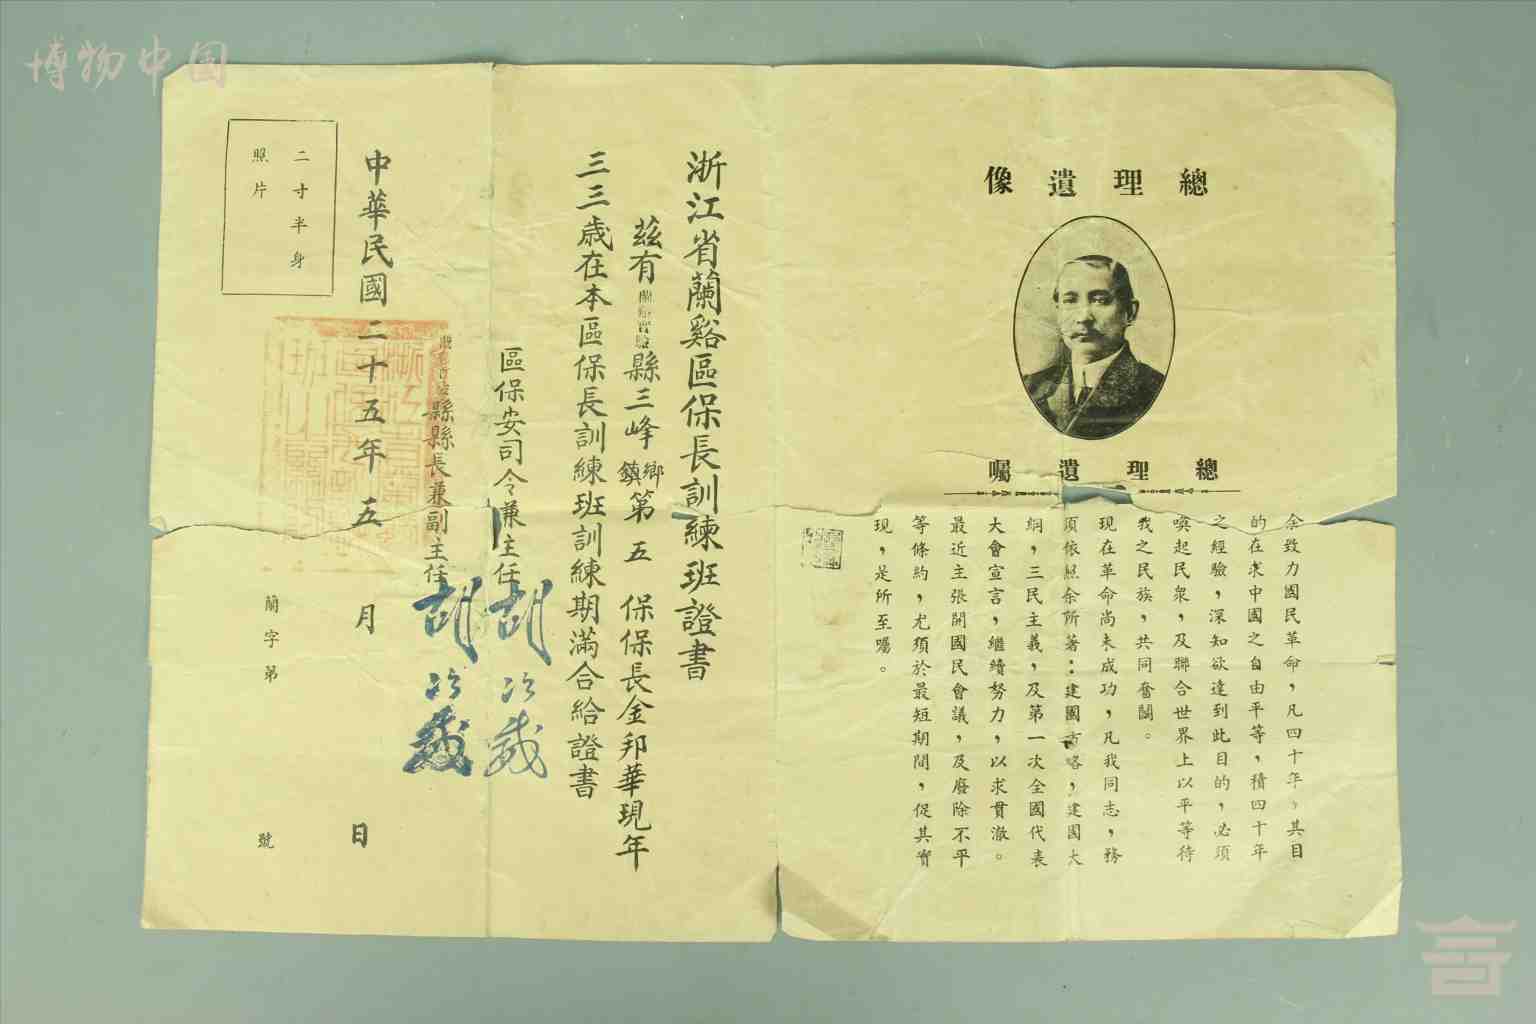 博物中国
總理遺像
總理遺囑
余致力國民革命，凡四十年，其目
的在求中國之自由平等，積四十年
之經驗，深知欲達到此目的，必須
喚起民衆，及聯合世界上以平等待
我之民族，共同奮鬭。
現在革命尚未成功，凡我同志，務
須依照余所著：建國方略，建國大
綱，三民主義，及第一次全國代表
大會宣言，繼續努力，以求貫澈。
最近主張開國民會議，及廢除不平
等條約，尤須於最短期間，促其實
現，是所至囑。
浙江省蘭谿區保長訓練班證書
茲有蘭谿實驗縣三峰鄉鎮第五保保長金邦華現年
三三歲在本區保長訓練班訓練期滿合給證書
區保安司令兼主任胡次威
蘭谿實驗縣縣長兼副主任胡次威
中華民國二十五年五月日
蘭字第號
二寸半身
照片